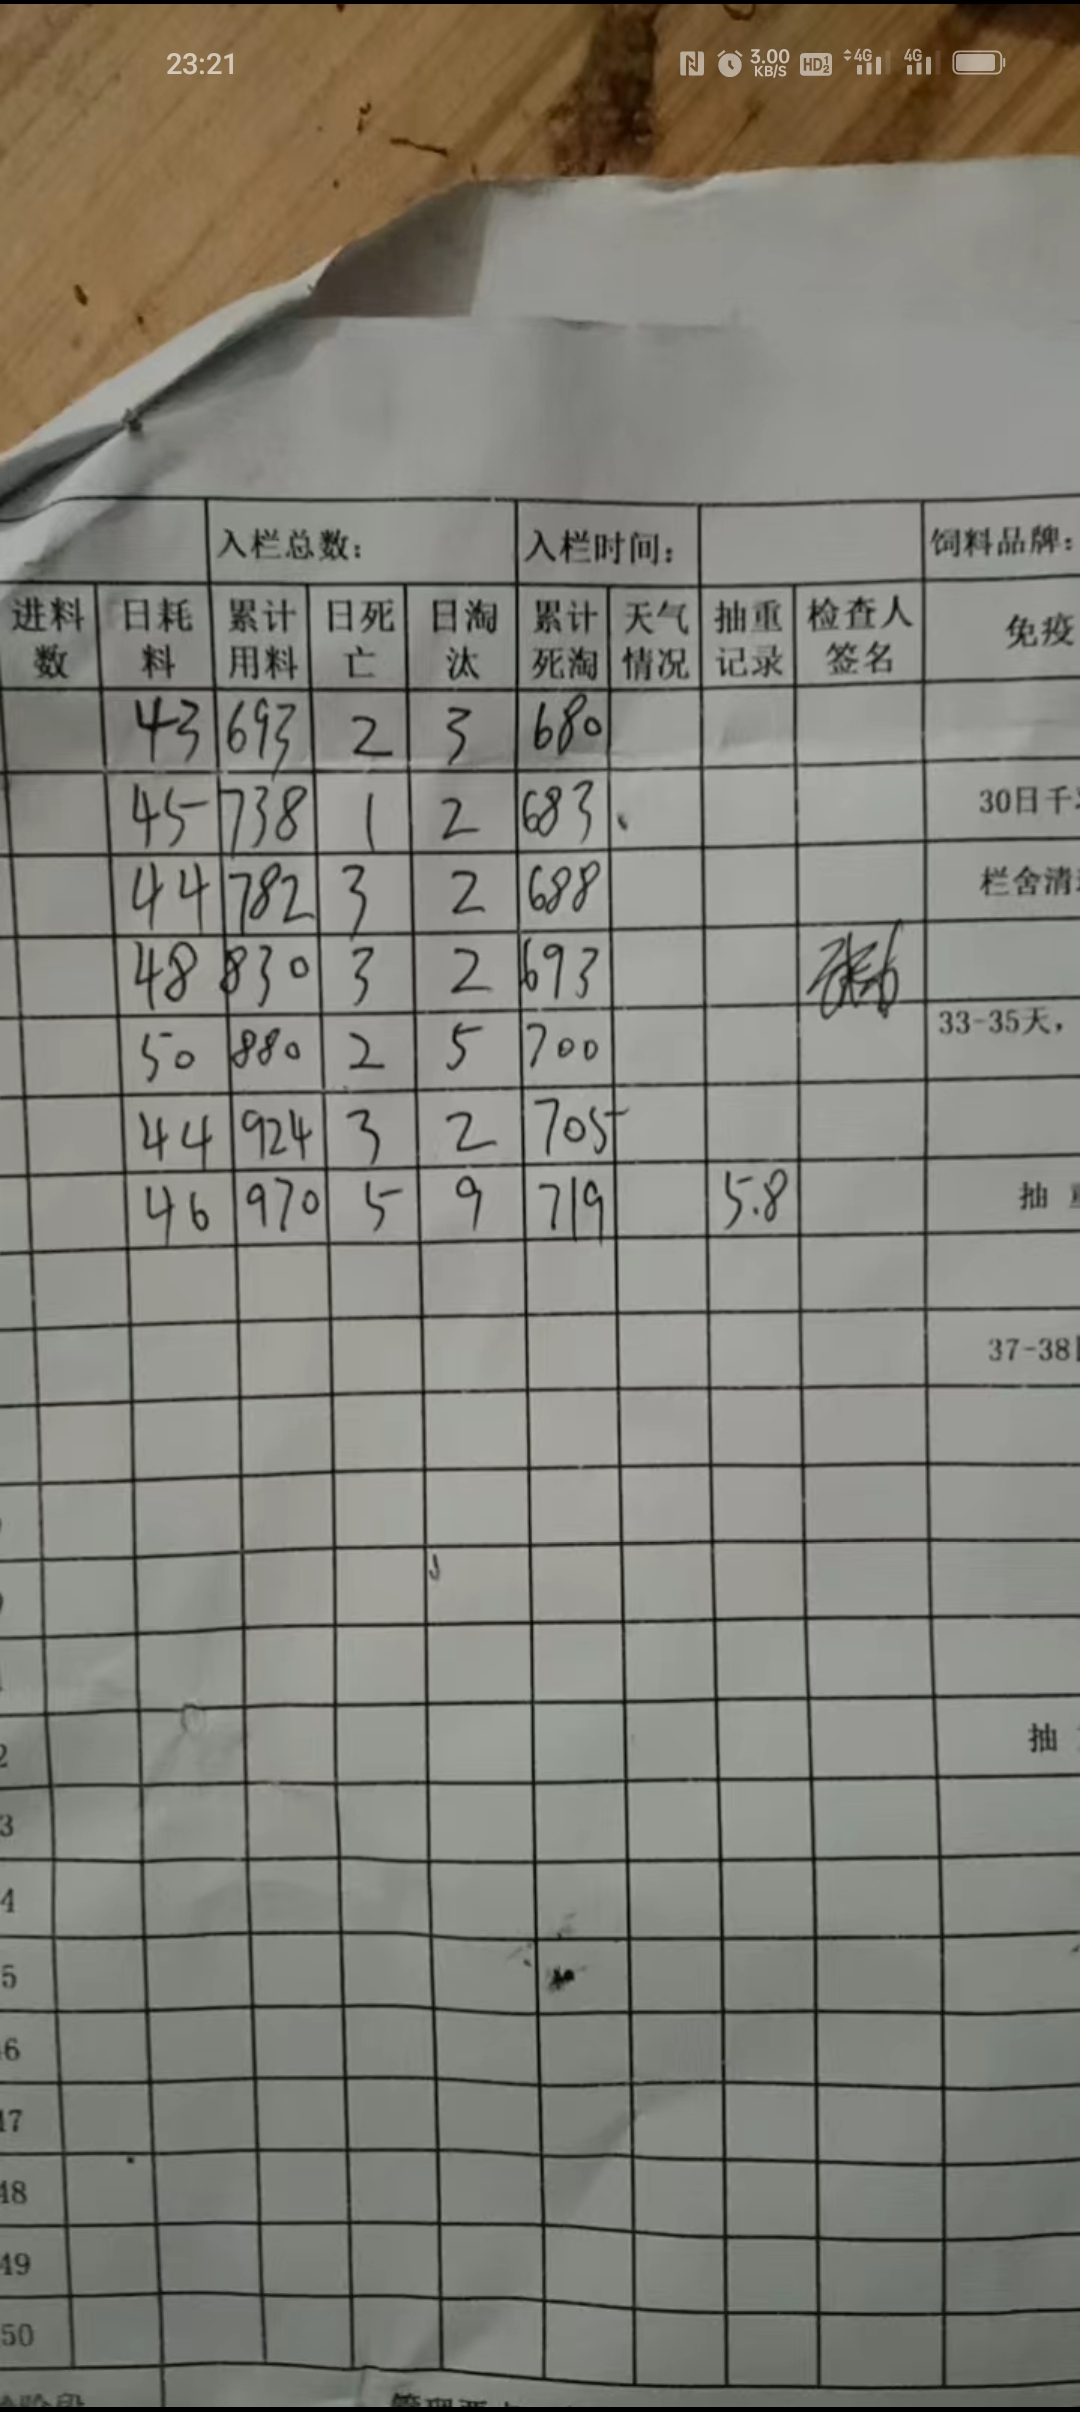 23:21
3.00 KB/S HD 4G 4G
入栏总数: 入栏时间: 饲料品牌:
进料数 日耗料 累计用料 日死亡 日淘汰 累计死淘 天气情况 抽重记录 检查人签名 免疫
43 693 2 3 680
45 738 1 2 683 30日千
44 782 3 2 688 栏舍清
48 830 3 2 693
50 880 2 5 700 33-35天,
44 924 3 2 705
46 970 5 9 719 5.8 抽
37-38
2 抽
3
4
5
6
47
48
49
50